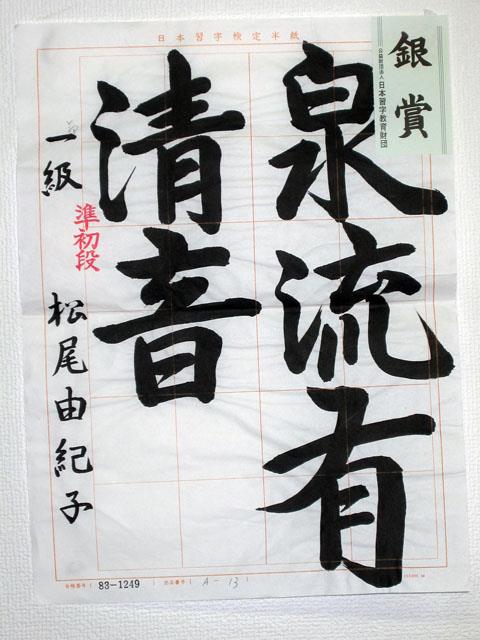 日本習字検定半紙
銀賞
公益財団法人 日本習字教育財団
泉流有
清音
一級
準初段
松尾由紀子
83-1249
A-13